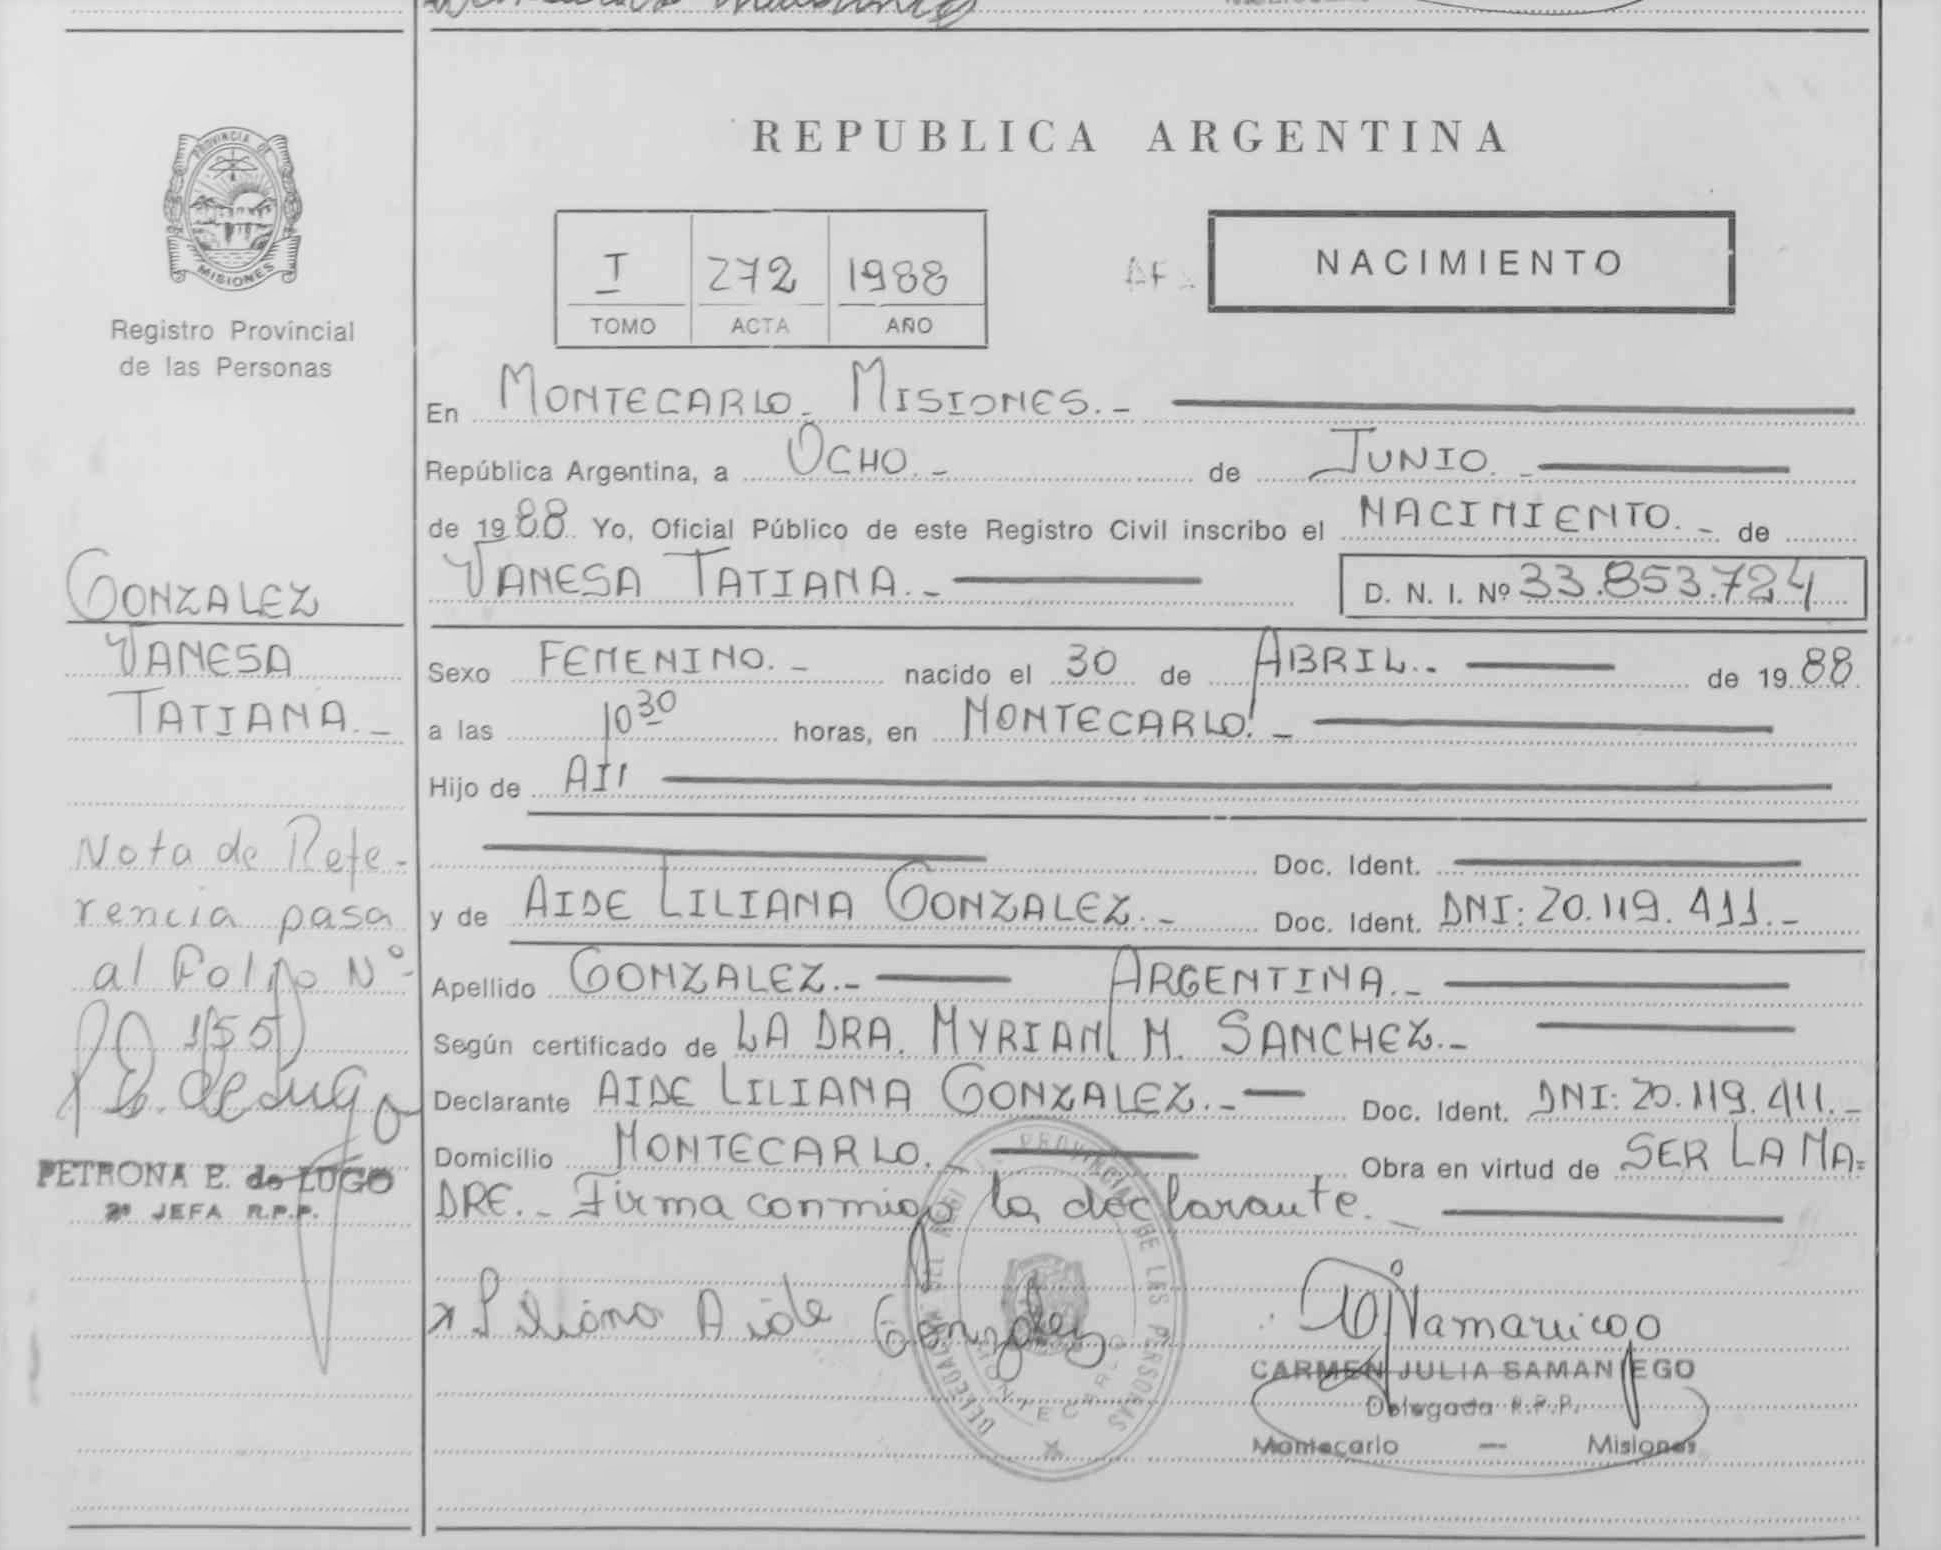 PROVINCIA DE
MISIONES
Registro Provincial
de las Personas
GONZALEZ
VANESA
TATIANA.-
Nota de Refe-
rencia pasa
al Folio Nº
155
PETRONA E. de LUGO
2ª JEFA R.P.P.
REPUBLICA ARGENTINA
I 272 1988
TOMO ACTA AÑO
NACIMIENTO
En MONTECARLO.- MISIONES.-
República Argentina, a OCHO.- de JUNIO.-
de 1988. Yo, Oficial Público de este Registro Civil inscribo el NACIMIENTO.- de
VANESA TATIANA.- D. N. I. Nº 33.853.724
Sexo FEMENINO.- nacido el 30 de ABRIL.- de 1988
a las 10 30 horas, en MONTECARLO.-
Hijo de
Doc. Ident.
y de AIDE LILIANA GONZALEZ.- Doc. Ident. DNI: 20.119.411.-
Apellido GONZALEZ.- ARGENTINA.-
Según certificado de LA DRA. MYRIAN M. SANCHEZ.-
Declarante AIDE LILIANA GONZALEZ.- Doc. Ident. DNI: 20.119.411.-
Domicilio MONTECARLO.- Obra en virtud de SER LA MA=
DRE.- Firma conmigo la declarante.-
x Liliana Aide Gonzalez
CARMEN JULIA SAMANIEGO
Delegada R.P.P.
Montecarlo — Misiones